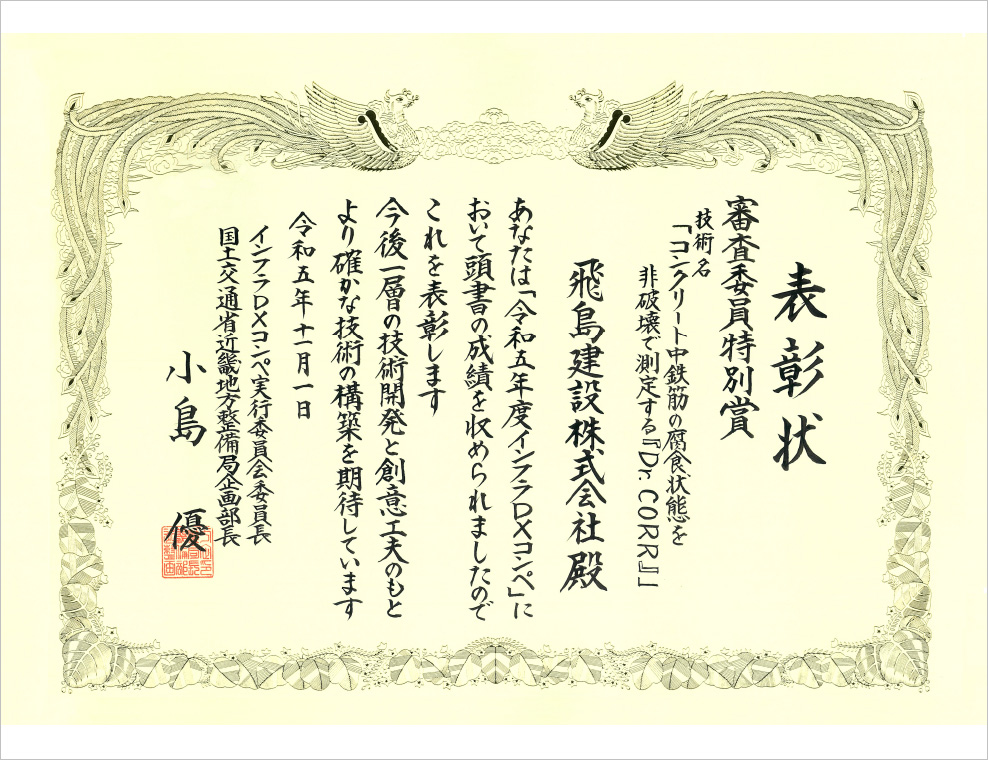 表彰状
審査委員特別賞
技術名
「コンクリート中鉄筋の腐食状態を
非破壊で測定する『Dr.CORR』」
飛島建設株式会社殿
あなたは「令和五年度インフラDXコンペ」に
おいて頭書の成績を収められましたので
これを表彰します
今後一層の技術開発と創意工夫のもと
より確かな技術の構築を期待しています
令和五年十一月一日
インフラDXコンペ実行委員会委員長
国土交通省近畿地方整備局企画部長
小島 優